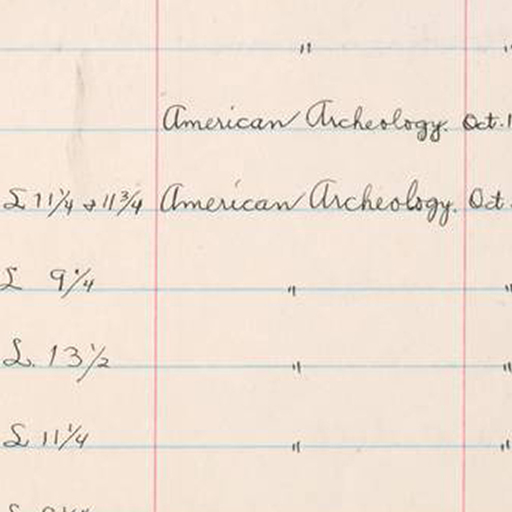 "
American Archeology. Oct. 1
L 11 1/4 & 11 3/4 American Archeology. Oct.
L 9 1/4 " "
L. 13 1/2 " "
L 11 1/4 " "